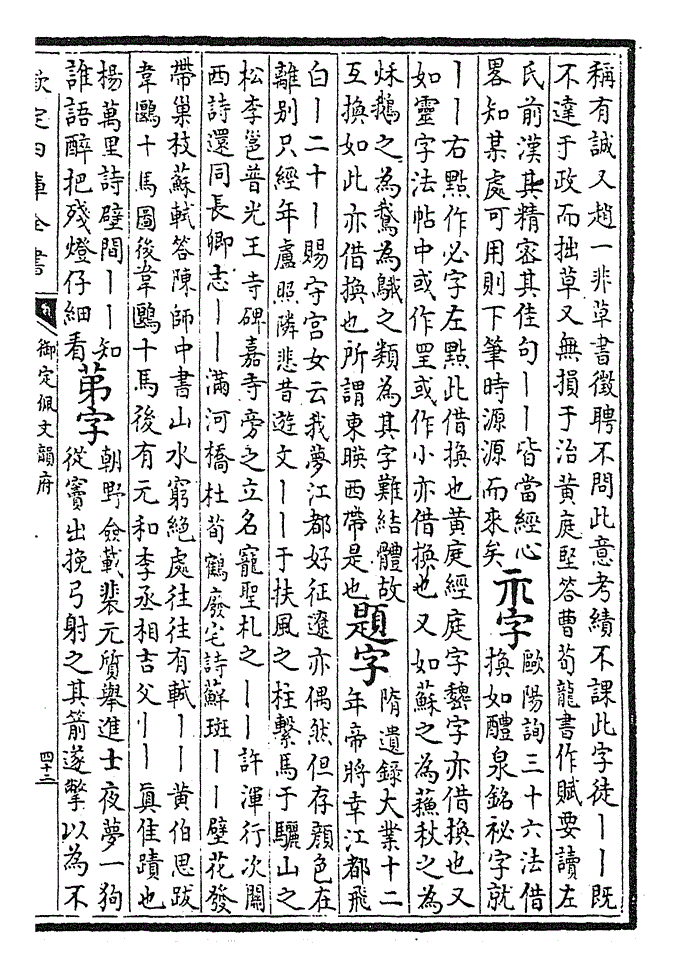 稱有誠又趙一非草書徵聘不問此意考績不課此字徒丨丨既
不達于政而拙草又無損于治黃庭堅答曹荀龍書作賦要讀左
氏前漢其精密其佳句丨丨皆當經心
畧知某處可用則下筆時源源而來矣
示字
歐陽詢三十六法借
換如醴泉銘祕字就
丨丨右點作必字左點此借換也黃庭經庭字字亦借換也又
如靈字法帖中或作罡或作小亦借換也又如蘇之為蘓秋之為
秌鵝之為鵞為䳘之類為其字難結體故
互換如此亦借換也所謂東映西帶是也
題字
隋遺錄大業十二
年帝將幸江都飛
白丨二十丨賜守宮女云我夢江都好征遼亦偶然但存顔色在
離別只經年盧照隣悲昔遊文丨丨于扶風之柱繫馬于驪山之
松李邕普光王寺碑嘉寺旁之立名寵聖札之丨丨許渾行次關
西詩還同長卿志丨丨滿河橋杜荀鶴廢宅詩蘚斑丨丨壁花發
帶巢枝蘇軾答陳師中書山水窮絕處往往有軾丨丨黃伯思跋
韋鷗十馬圖後韋鷗十馬後有元和李丞相吉父丨丨真佳蹟也
楊萬里詩壁間丨丨知
誰語醉把殘燈仔細看
苐字
朝野僉載裴元質舉進士夜夢一狗
從竇出挽弓射之其箭遂擎以為不
欽定四庫全書
御定佩文韻府
四十三